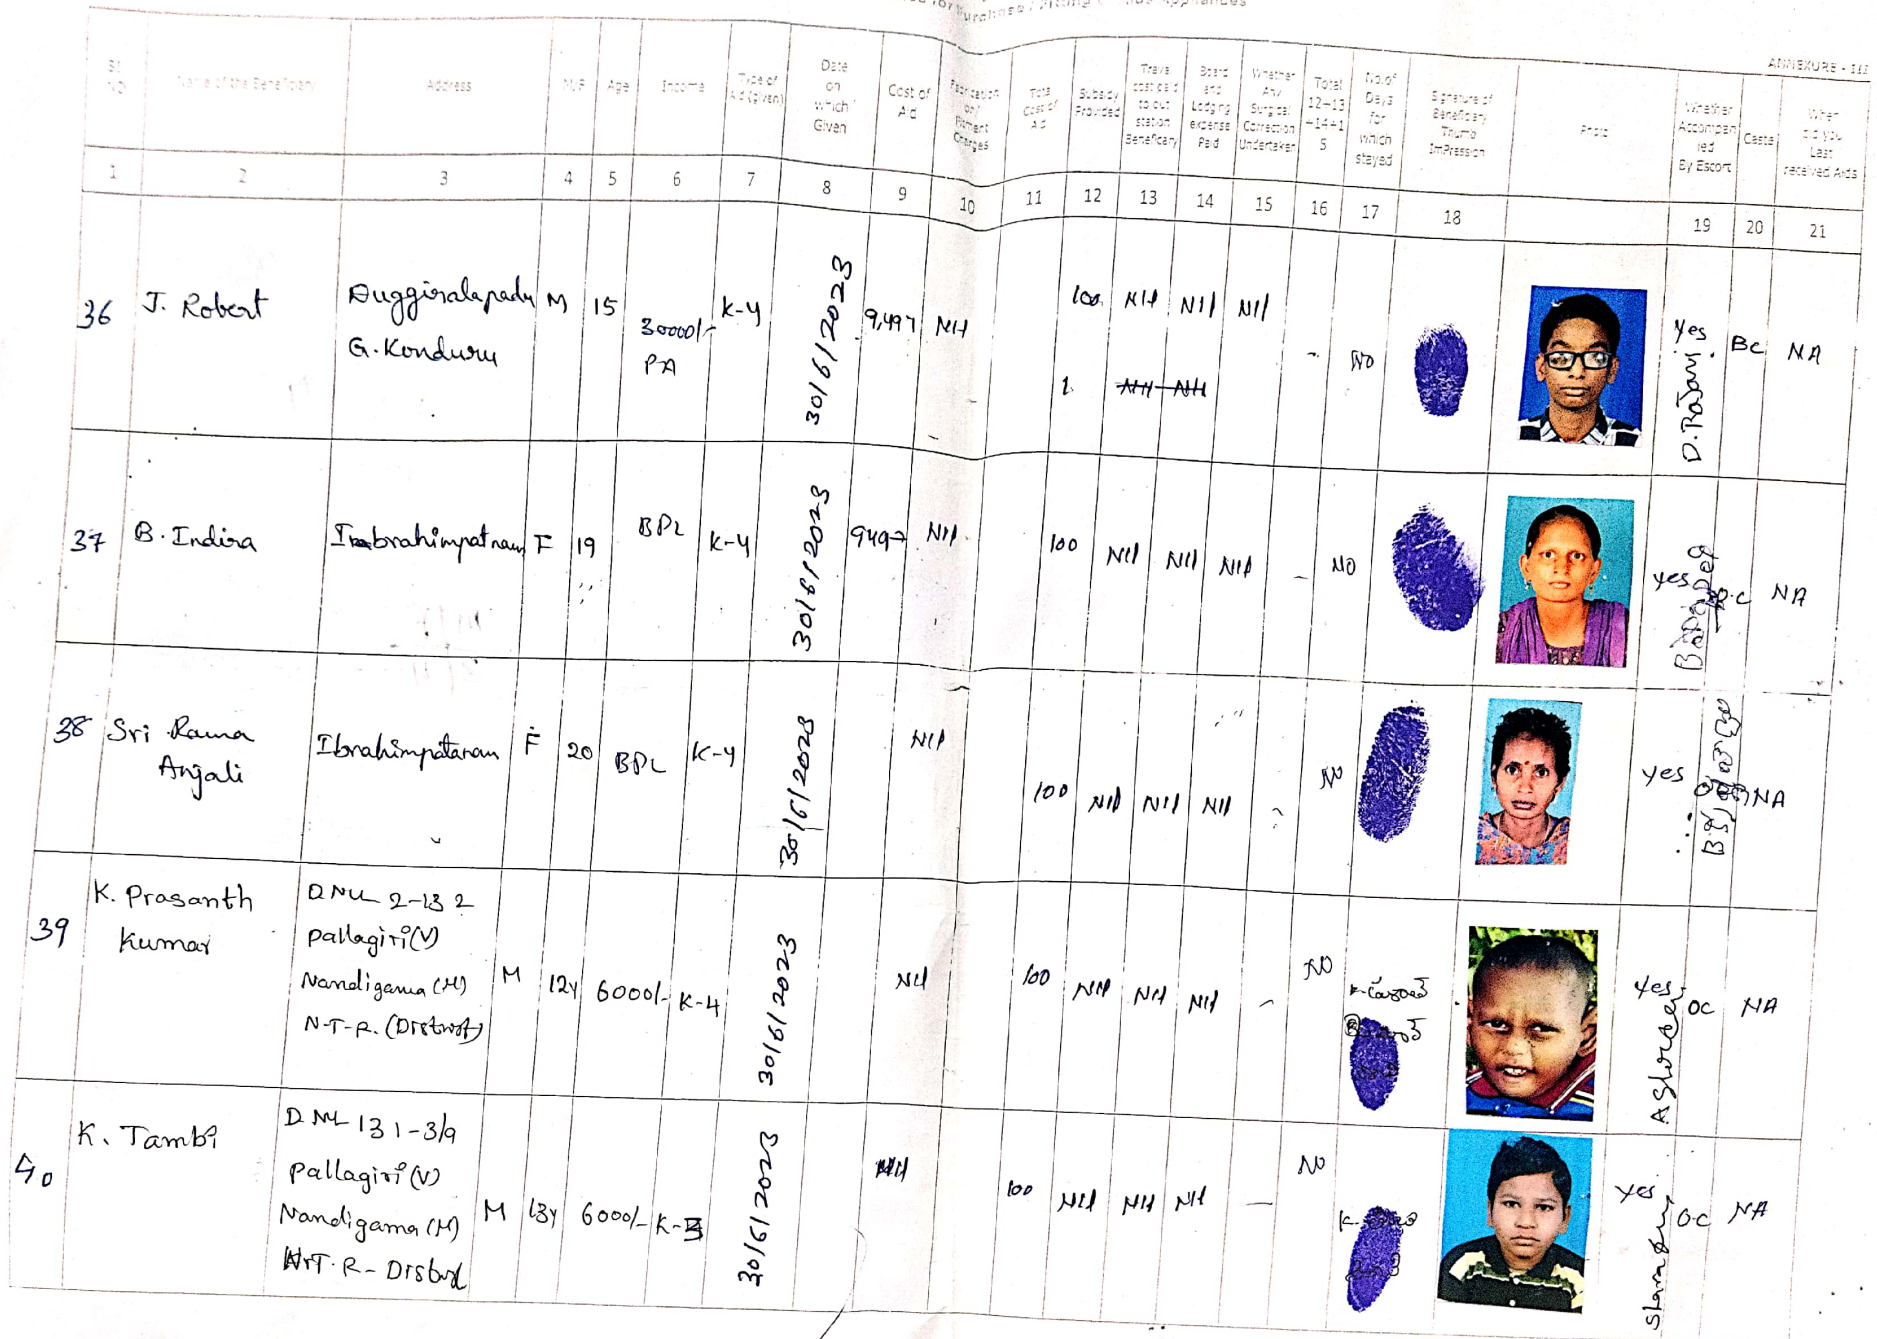 Appliances
ANNEXURE - III
Sl. NO
Name of the Beneficiary
Address
M/F
Age
Income
Type of Aid (given)
Date on which Given
Cost of Aid
Fabrication or / Fitment Charges
Total Cost of Aid
Subsidy Provided
Travel cost paid to out station Beneficiary
Board and Lodging expense Paid
Whether Any Surgical Correction Undertaken
Total 12+13 +14+1 5
No. of Days for which stayed
Signature of Beneficiary Thumb ImPression
Photo
Whether Accompan ied By Escort
Caste
When did you Last received Aids
1 2 3 4 5 6 7 8 9 10 11 12 13 14 15 16 17 18 19 20 21
36 J. Robert Duggiralapadu M 15 30000/- K-4 30/6/2023 9,497 Nil 100 Nil Nil Nil - NO Yes BC NA
G. Konduru PA
D. Rajani
37 B. Indira Imbrahimpatnam F 19 BPL K-4 30/6/2023 9497 Nil 100 Nil Nil Nil - NO yes NA
38 Sri Rama Ibrahimpatanam F 20 BPL K-4 30/6/2023 Nil 100 Nil Nil Nil - NO yes NA
Anjali
39 K. Prasanth D.NU 2-132
Kumar Pallagiri (V)
Nandigama (M) M 12y 6000/- K-4 30/6/2023 Nil 100 Nil Nil Nil - NO yes OC NA
N-T-R. (District)
40 K. Tambi D.NU 131-3/9
Pallagiri (V)
Nandigama (M) M 13y 6000/- K-3 30/6/2023 Nil 100 Nil Nil Nil - NO yes O.C NA
N.T.R-